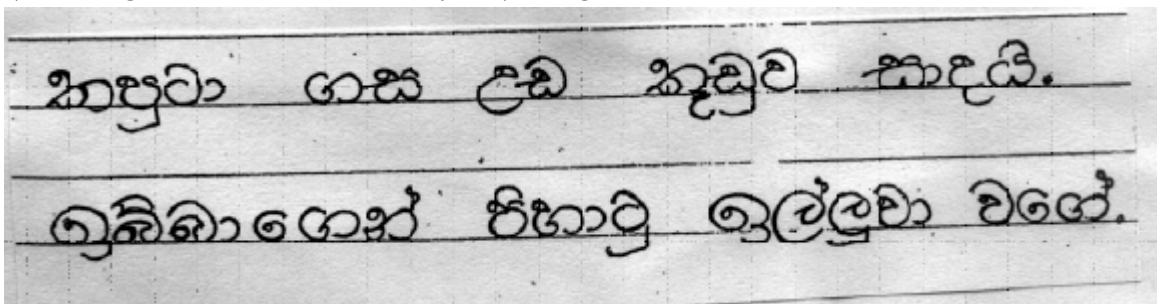 කපුටා ගස උඩ කූඩුව සාදයි.
ඉබ්බාගෙන් පිහාටු ඉල්ලුවා වගේ.